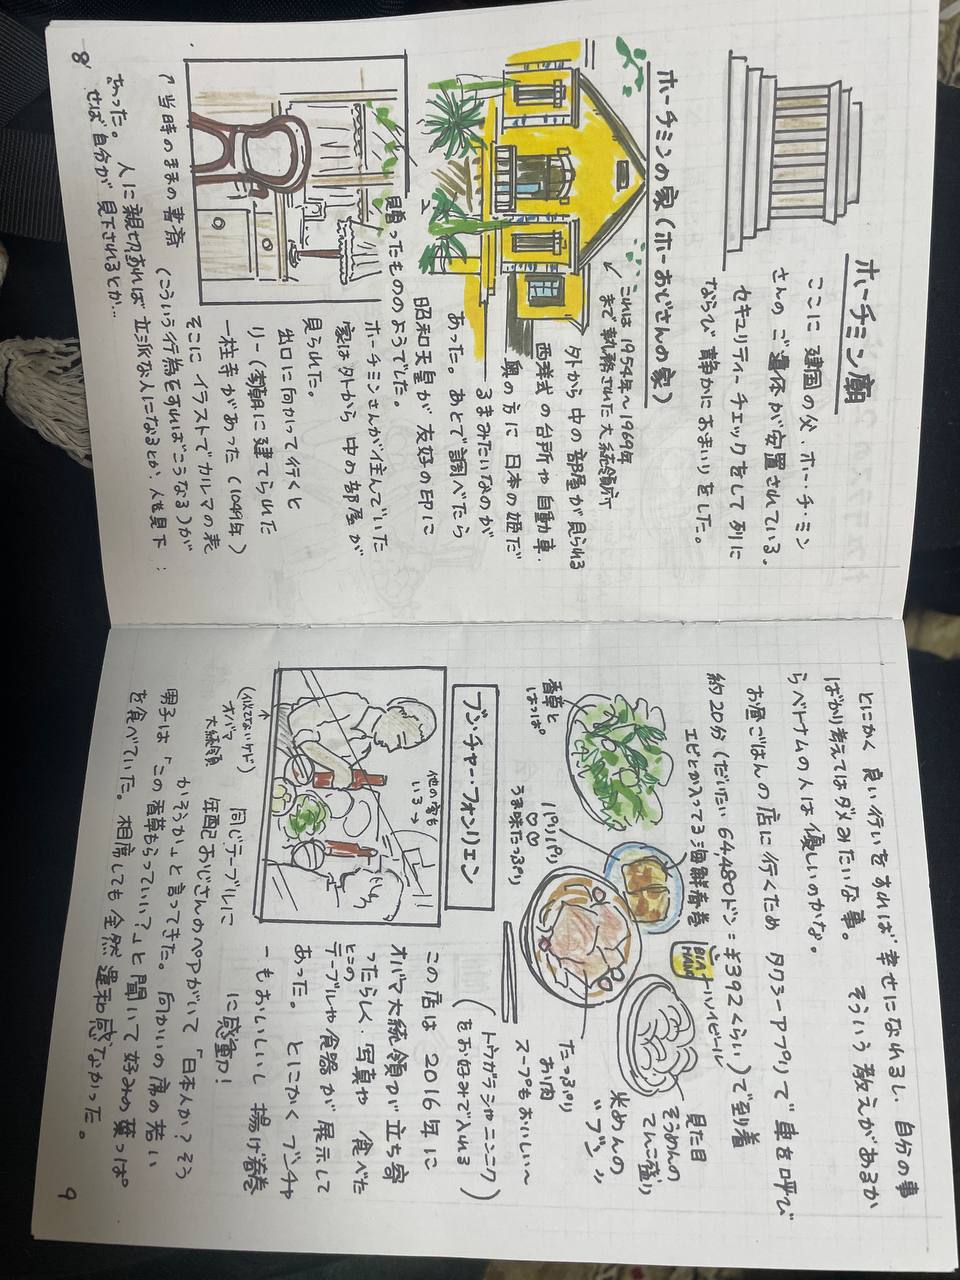 ホーチミン廟
ここに 建国の父、ホー・チ・ミン
さんの ご遺体が安置されている。
セキュリティーチェックをして 列に
ならび 静かにおまいりをした。
ホーチミンの家(ホーおじさんの家)
これは 1954年〜1969年
まで執務された大統領府
外から 中の部屋が見られる
西洋式の台所や 自動車、
奥の方に 日本の姫だ
るまみたいなのが
あった。あとで調べたら
昭和天皇が 友好の印に
贈ったもののようでした。
ホーチミンさんが住んでいた
家は外から 中の部屋が
見られた。
出口に向かって行くと
リー(李)朝に建てられた
一柱寺があった(1049年)
そこに イラストでカルマの表
(こういう行為をすればこうなる)が
↑ 当時のままの書斎
あった。 人に親切あれば 立派な人になるとか、人を見下
せば 自分が 見下されるとか…
8
とにかく 良い行いをすれば 幸せになれるし、自分の事
ばかり考えてはダメみたいな事。 そういう教えがあるか
らベトナムの人は 優しいのかな。
お昼ごはんの店に行くため タクシーアプリで 車を呼び
約20分(だいたい 64480ドン=¥392くらい)で到着
エビとかが入ってる海鮮春巻
香草と
はっぱ
パリパリ
♡♡
うま味たっぷり
BIA
HANOI
ハノイビール
見た目
そうめんの
てんこ盛り
米めんの
"ブン"
たっぷり
お肉
スープもおいしい〜
(トウガラシやニンニク
をお好みで入れる)
ブン・チャー・フォンリエン
他の客も
いる→
(似てないケド)
オバマ
大統領
この店は 2016年に
オバマ大統領が立ち寄
ったらしく、写真や 食べた
とこの
テーブルや食器が 展示して
あった。 とにかく ブンチャ
ーもおいしいし 揚げ春巻
に感動!
同じテーブルに
年配おじさんのペアがいて 「日本人か?そう
かそうか」と言ってきた。向かいの席の若い
男子は 「この香草もらっていい?」と聞いて 好みの葉っぱ
を食べていた。相席しても 全然 違和感なかった。
9